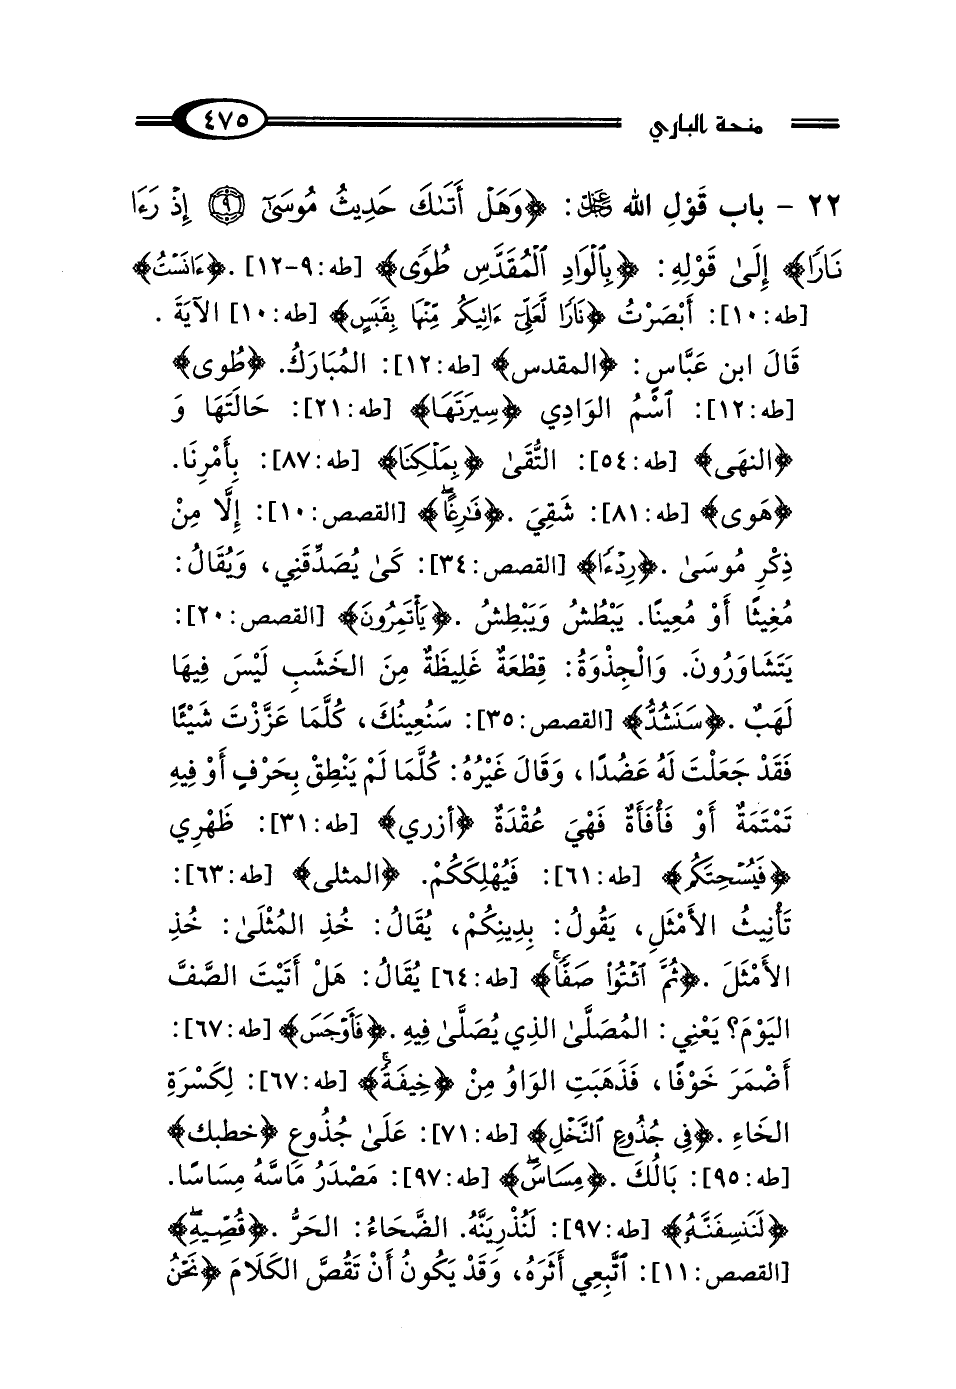 منحة الباري
٤٧٥
٢٢ - باب قَوْلِ الله عَزَّ وَجَلَّ: ﴿وَهَلْ أَتَىٰكَ حَدِيثُ مُوسَىٰٓ ٩ إِذْ رَءَا
نَارًا﴾ إِلَىٰ قَوْلِهِ: ﴿بِٱلْوَادِ ٱلْمُقَدَّسِ طُوًى﴾ [طه:٩-١٢]. ﴿ءَانَسْتُ﴾
[طه:١٠]: أَبْصَرْتُ ﴿نَارًا لَّعَلِّىٓ ءَاتِيكُم مِّنْهَا بِقَبَسٍ﴾ [طه:١٠] الآيَةَ.
قَالَ ابن عَبَّاسٍ: ﴿المقدس﴾ [طه:١٢]: المُبَارَكُ. ﴿طُوى﴾
[طه:١٢]: ٱسْمُ الوَادِي ﴿سِيرَتَهَا﴾ [طه:٢١]: حَالَتَهَا وَ
﴿النهَى﴾ [طه:٥٤]: التُّقَىٰ ﴿بِمَلْكِنَا﴾ [طه:٨٧]: بِأَمْرِنَا.
﴿هَوى﴾ [طه:٨١]: شَقِيَ. ﴿فَٰرِغًا﴾ [القصص:١٠]: إِلَّا مِنْ
ذِكْرِ مُوسَىٰ. ﴿رِدْءًا﴾ [القصص:٣٤]: كَىْ يُصَدِّقَنِي، وَيُقَالُ:
مُغِيثًا أَوْ مُعِينًا. يَبْطُشُ وَيَبْطِشُ. ﴿يَأْتَمِرُونَ﴾ [القصص:٢٠]:
يَتَشَاوَرُونَ. وَالْجِذْوَةُ: قِطْعَةٌ غَلِيظَةٌ مِنَ الخَشَبِ لَيْسَ فِيهَا
لَهَبٌ. ﴿سَنَشُدُّ﴾ [القصص:٣٥]: سَنُعِينُكَ، كُلَّمَا عَزَّزْتَ شَيْئًا
فَقَدْ جَعَلْتَ لَهُ عَضُدًا، وَقَالَ غَيْرُهُ: كُلَّمَا لَمْ يَنْطِقْ بِحَرْفٍ أَوْ فِيهِ
تَمْتَمَةٌ أَوْ فَأْفَأَةٌ فَهْيَ عُقْدَةٌ ﴿أزري﴾ [طه:٣١]: ظَهْرِي
﴿فَيُسْحِتَكُم﴾ [طه:٦١]: فَيُهْلِكَكُمْ. ﴿المثلى﴾ [طه:٦٣]:
تَأْنِيثُ الأَمْثَلِ، يَقُولُ: بِدِينِكُمْ، يُقَالُ: خُذِ المُثْلَىٰ: خُذِ
الأَمْثَلَ. ﴿ثُمَّ ٱئْتُوا۟ صَفًّا﴾ [طه:٦٤] يُقَالُ: هَلْ أَتَيْتَ الصَّفَّ
اليَوْمَ؟ يَعْنِي: المُصَلَّىٰ الذِي يُصَلَّىٰ فِيهِ. ﴿فَأَوْجَسَ﴾ [طه:٦٧]:
أَضْمَرَ خَوْفًا، فَذَهَبَتِ الوَاوُ مِنْ ﴿خِيفَةً﴾ [طه:٦٧]: لِكَسْرَةِ
الخَاءِ. ﴿فِى جُذُوعِ ٱلنَّخْلِ﴾ [طه:٧١]: عَلَىٰ جُذُوعِ ﴿خطبك﴾
[طه:٩٥]: بَالُكَ. ﴿مِسَاسَ﴾ [طه:٩٧]: مَصْدَرُ مَاسَّهُ مِسَاسًا.
﴿لَنَنسِفَنَّهُۥ﴾ [طه:٩٧]: لَنُذْرِيَنَّهُ. الضَّحَاءُ: الحَرُّ. ﴿قُصِّيهِ﴾
[القصص:١١]: ٱتَّبِعِي أَثَرَهُ، وَقَدْ يَكُونُ أَنْ تَقُصَّ الكَلَامَ ﴿نَحْنُ